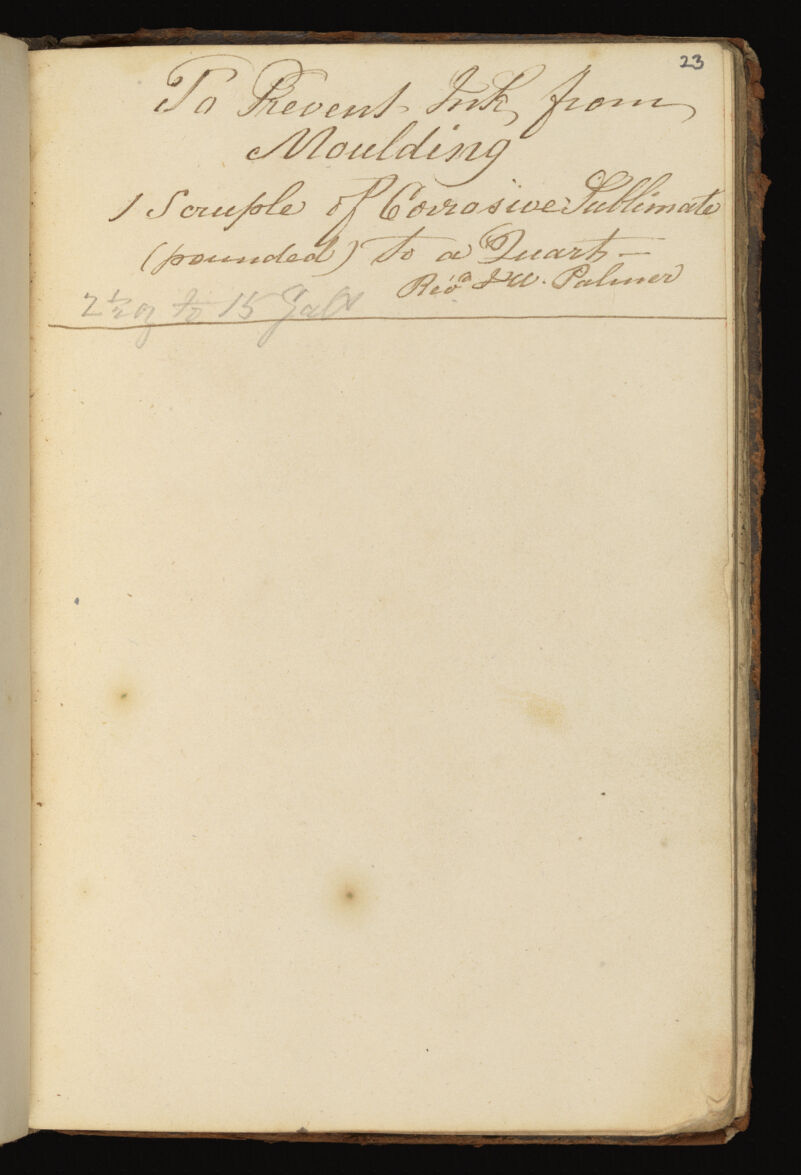 23
To Prevent Ink from
Moulding
1 Scruple of Corrosive Sublimate
(pounded) to a Quart —
Revd J W. Palmer
2 1/2 to 15 Galls